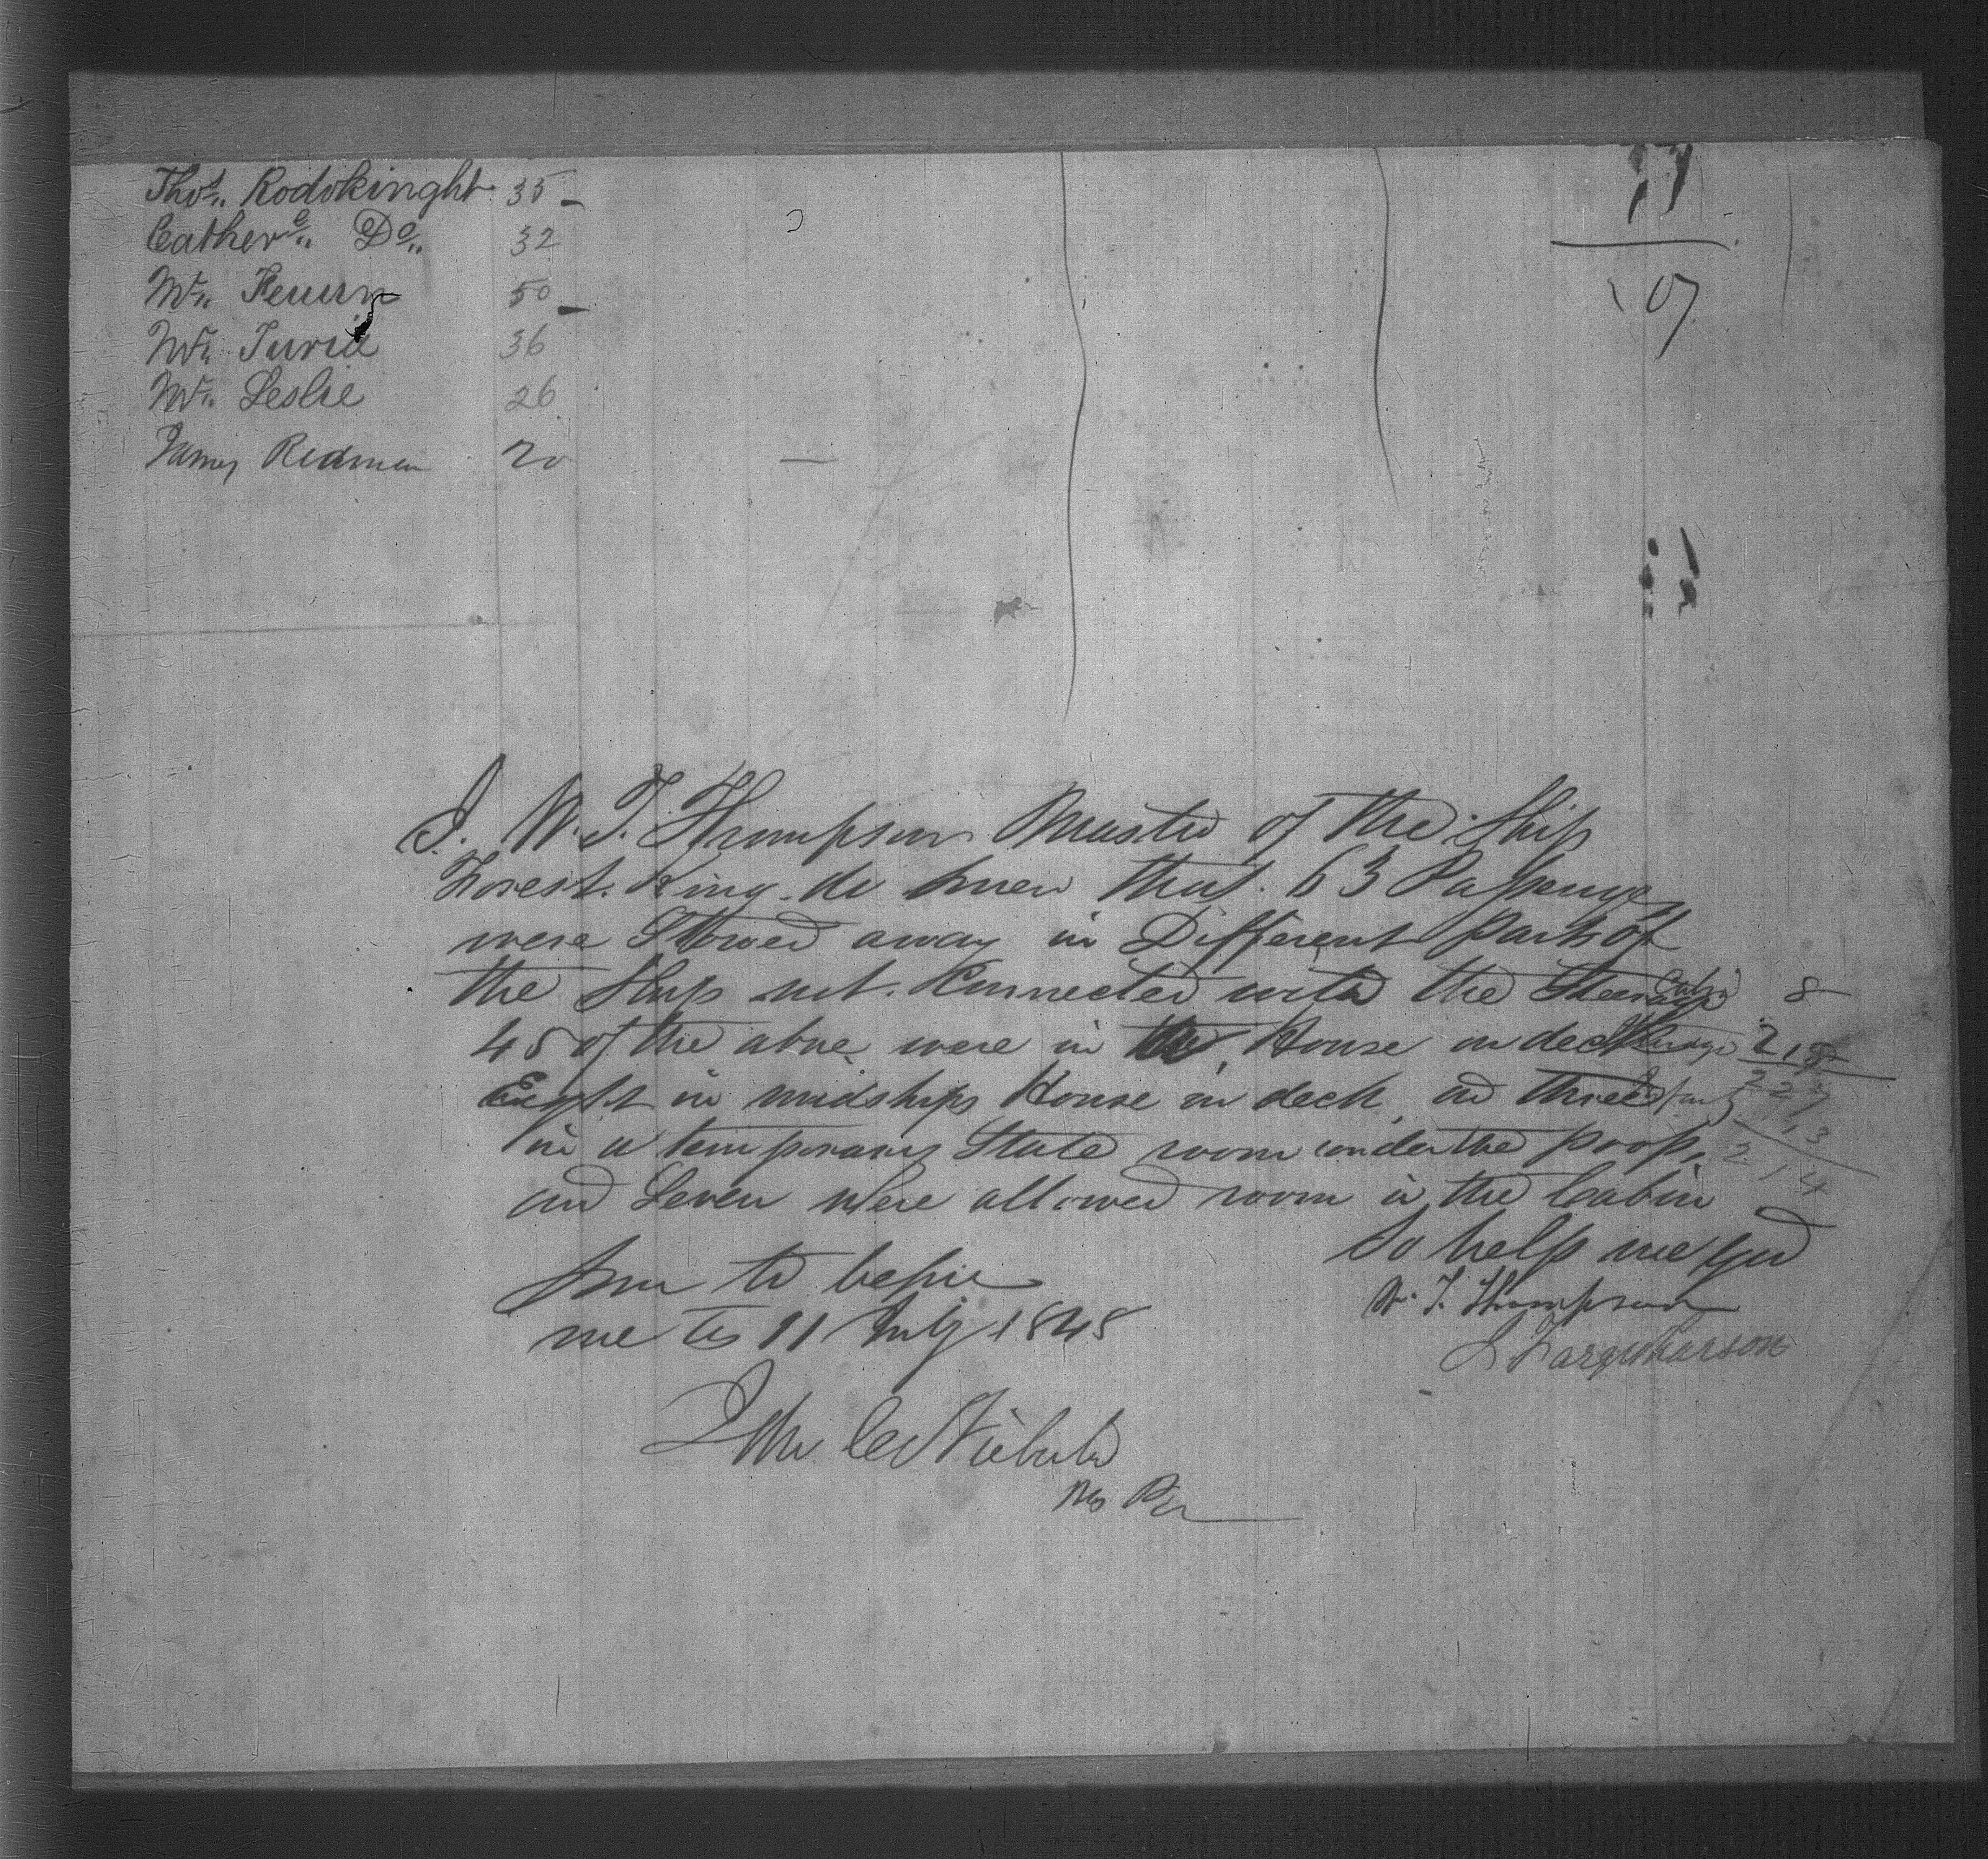 Thos. Rodokinght 35
Cather.e Do. 32
Mr. 50
Mr. 36
Mr. Leslie 26
James Redman 20
17
107
I. W. T. Thompson Master of the Ship
Forest King do swear that 63 Passenges
were Stowed away in Different parts of
the Ship not Connected with the Steerage
Cabin 8
45 of the above were in the House on deck
Steerage 219
Eight in midships House on deck, and three
227
13
in a temporary State room under the poop,
214
and Seven were allowed room in the Cabin
So help me God
Sworn to before
W. T. Thompson
me this 11 July 1848
Farquharson